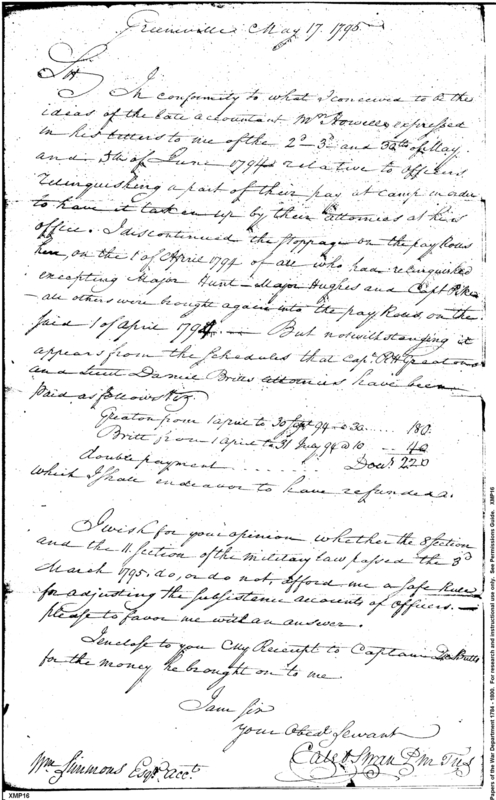 Greeneville May 17. 1795
Sir
In conformity to what I conceived to be the
ideas of the late accountant Mr Howell expressed
in his letters to me of the 2d 3d and 30th of May
and 5th of June 1794 relative to officers
relinquishing a part of their pay at camp in order
to have it taken up by their attornies at his
office. I discontinued the stoppage on the pay Rolls
here, on the 1 of April 1794 of all who had relinquished
excepting Major Hunt - Major Hughes and Capt Pike
- all others were brought again into the pay Rolls on the
said 1 of april 1794. — But notwithstanding it
appears from the Schedules that Capt. R H Greatons
and Lieut Daniel Britts attornies have been
paid as follows Viz
Greaton from 1 april to 30 Sept 94 @ 30 .... 180.
Britt from 1 april to 31 July 94 @ 10 .... 40
double payment ........ Dolls 220
which I shall endeavor to have refunded.
I wish for your opinion whether the 8 Section
and the 11 Section of the military law passed the 3d
March 1795. do, or do not, afford me a safe Rule
for adjusting the subsistance accounts of officers. —
please to favor me with an answer.
I enclose to you my Receipt to Captain DeButts
for the money he brought on to me
I am Sir
your Obed Servant
Caleb Swan P M Trs
Wm Simmons Esqr acct
XMP16
Papers of the War Department 1784 - 1800. For research and instructional use only. See Permissions Guide. XMP16